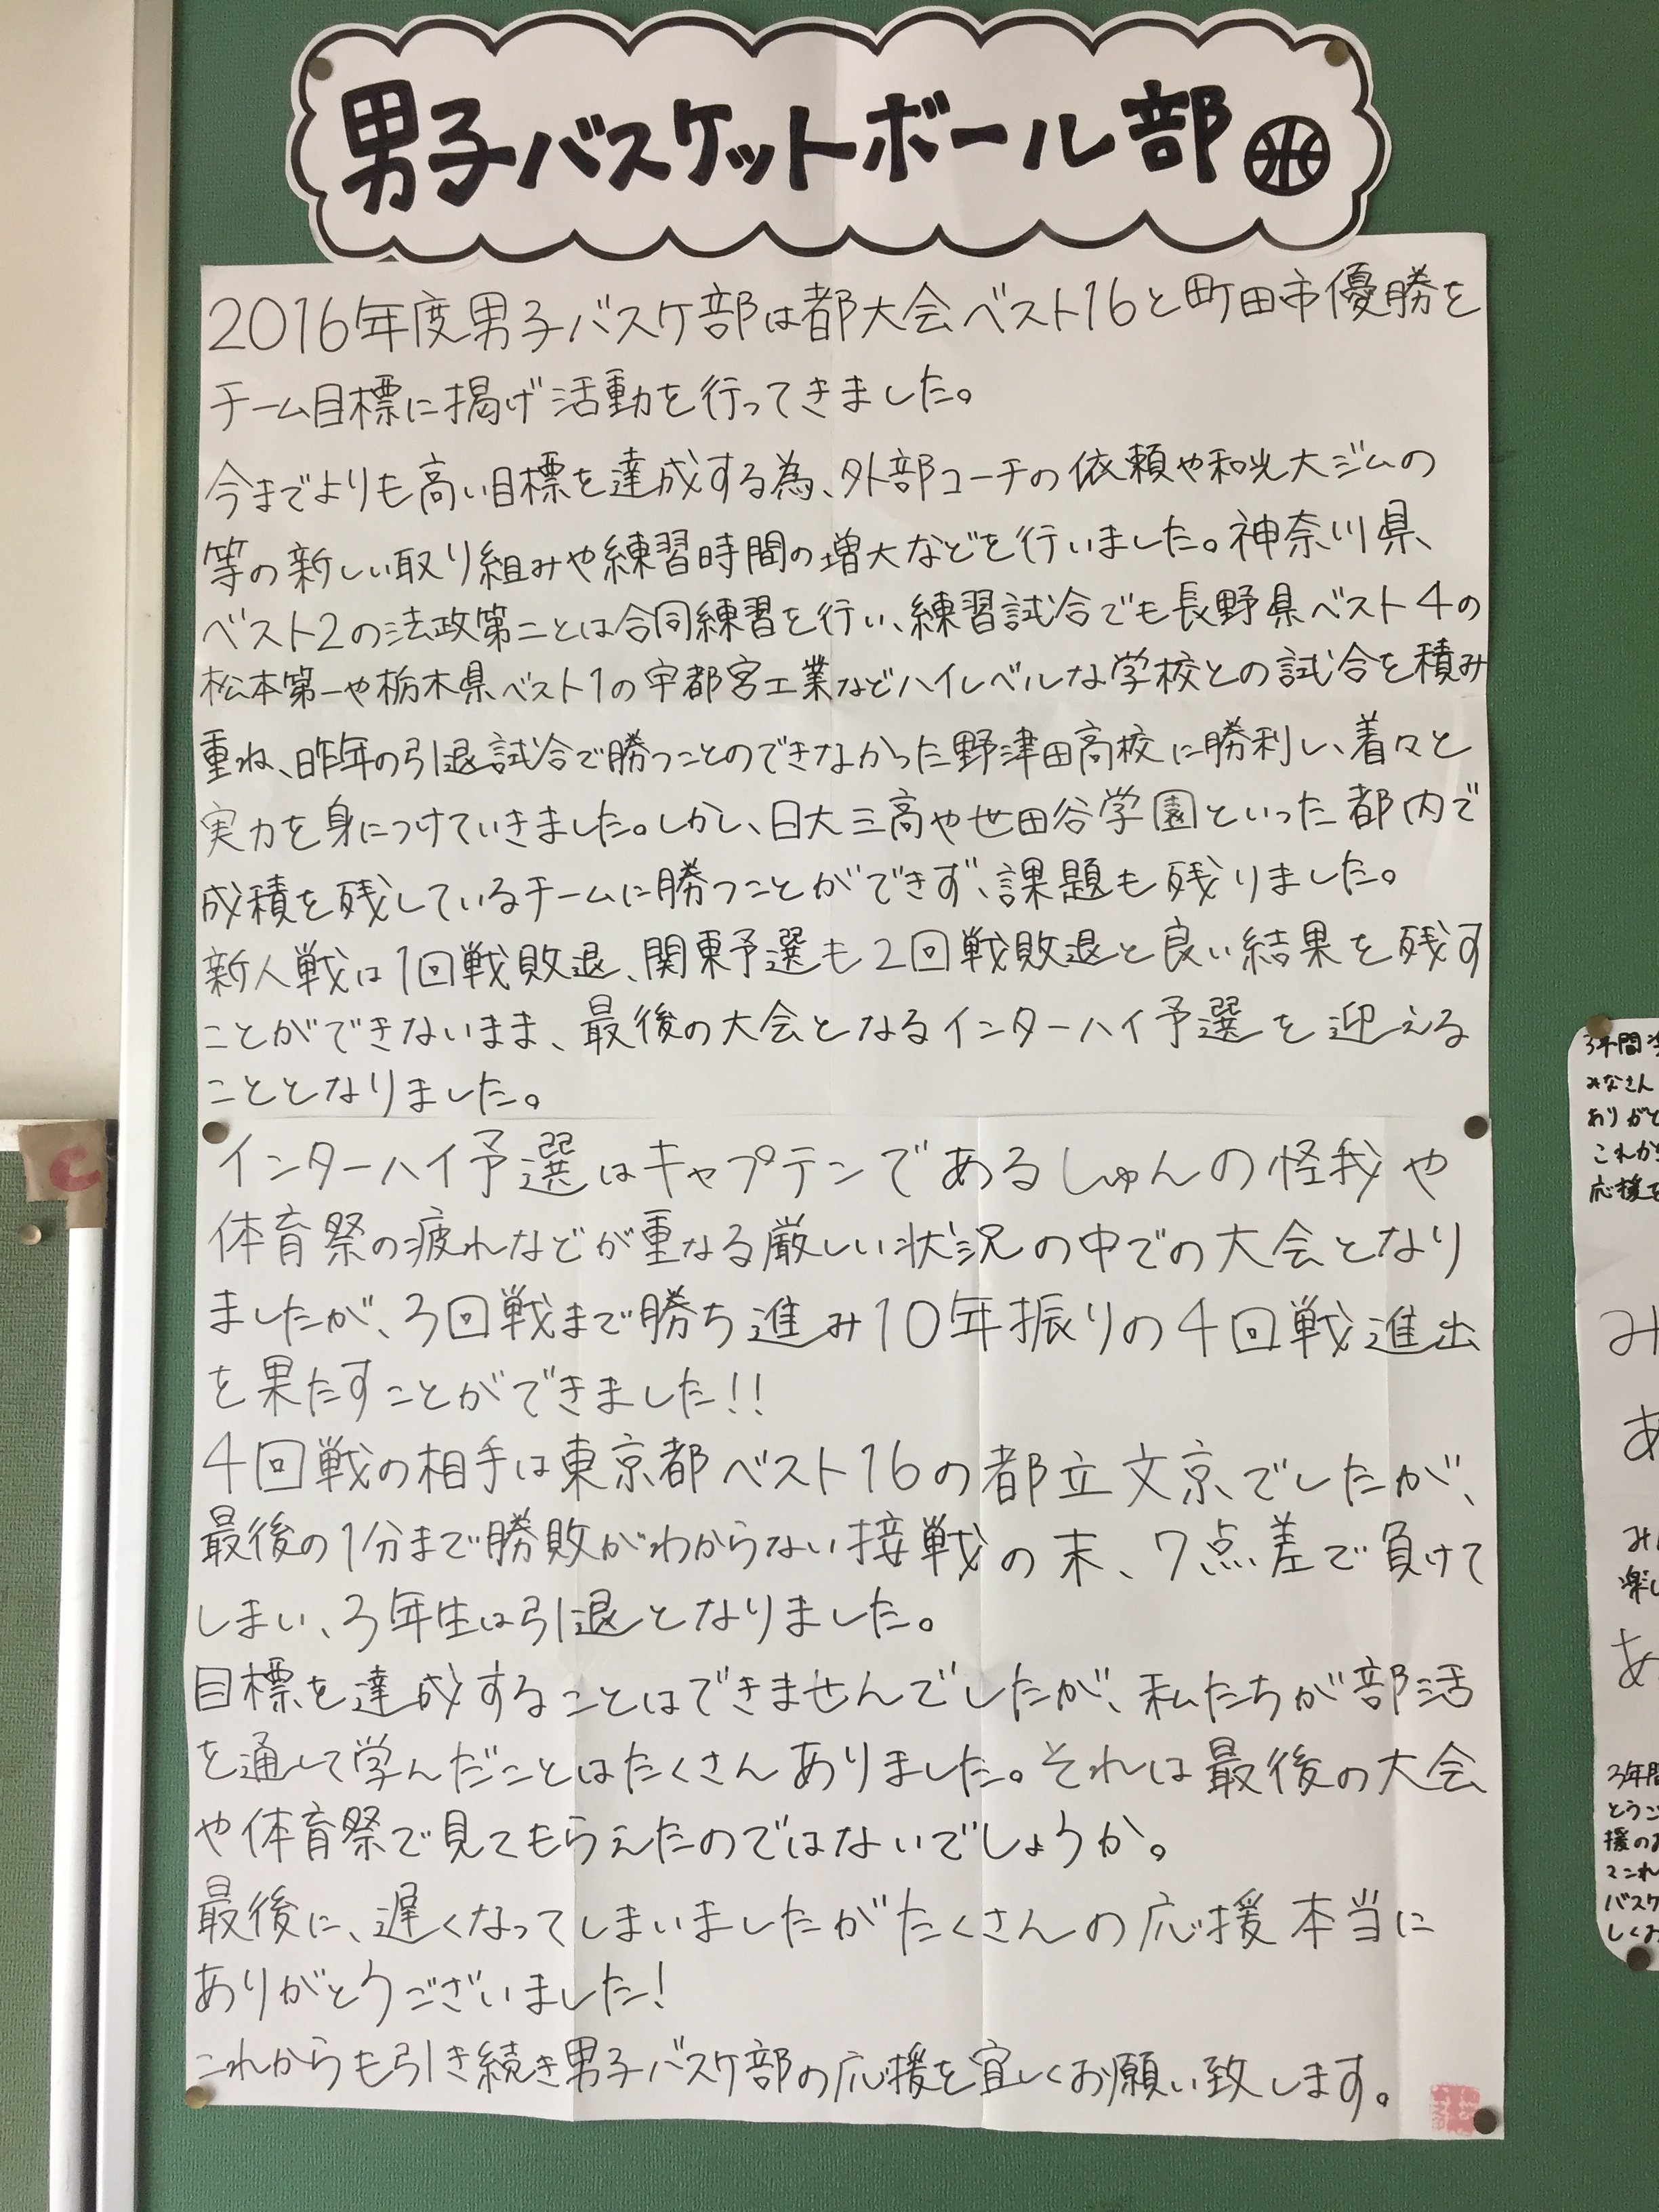 男子バスケットボール部
2016年度男子バスケ部は都大会ベスト16と町田市優勝を
チーム目標に掲げ活動を行ってきました。
今までよりも高い目標を達成する為、外部コーチの依頼や和光大ジムの
等の新しい取り組みや練習時間の増大などを行いました。神奈川県、
ベスト2の法政第二とは合同練習を行い、練習試合でも長野県ベスト4の
松本第一や栃木県ベスト1の宇都宮工業などハイレベルな学校との試合を積み
重ね、昨年の引退試合で勝つことのできなかった野津田高校に勝利し、着々と
実力を身につけていきました。しかし、日大三高や世田谷学園といった都内で
成積を残しているチームに勝つことができず、課題も残りました。
新人戦は1回戦敗退、関東予選も2回戦敗退と良い結果を残す
ことができないまま、最後の大会となるインターハイ予選を迎える
こととなりました。
インターハイ予選はキャプテンであるしゅんの怪我や
体育祭の疲れなどが重なる厳しい状況の中での大会となり
ましたが、3回戦まで勝ち進み10年振りの4回戦進出
を果たすことができました!!
4回戦の相手は東京都ベスト16の都立文京でしたが、
最後の1分まで勝敗がわからない接戦の末、7点差で負けて
しまい、3年生は引退となりました。
目標を達成することはできませんでしたが、私たちが部活
を通して学んだことはたくさんありました。それは最後の大会
や体育祭で見てもらえたのではないでしょうか。
最後に、遅くなってしまいましたがたくさんの応援本当に
ありがとうございました!
これからも引き続き男子バスケ部の応援を宜しくお願い致します。
C
3年間
みなさん
ありがと
これか
応援を
み
あ
み
楽し
あ
3年間
とうご
援のお
バスケ
しくお